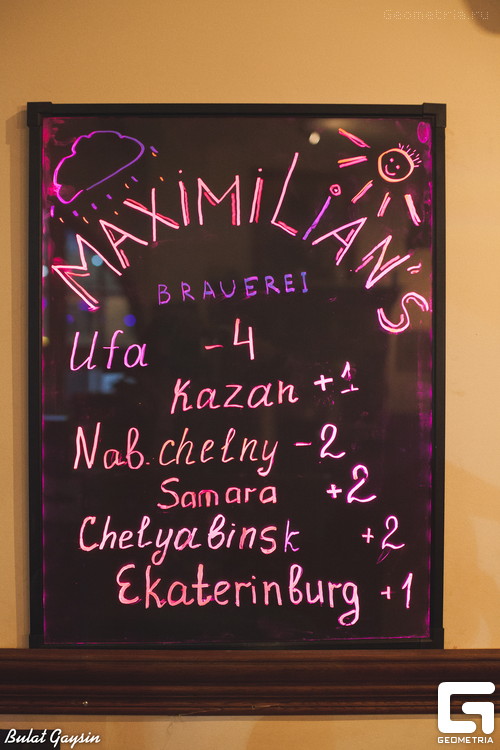 Geometria.ru
MAXIMILIAN'S
BRAUEREI
Ufa -4
Kazan +1
Nab.chelny -2
Samara +2
Chelyabinsk +2
Ekaterinburg +1
Bulat Gaysin
GEOMETRIA